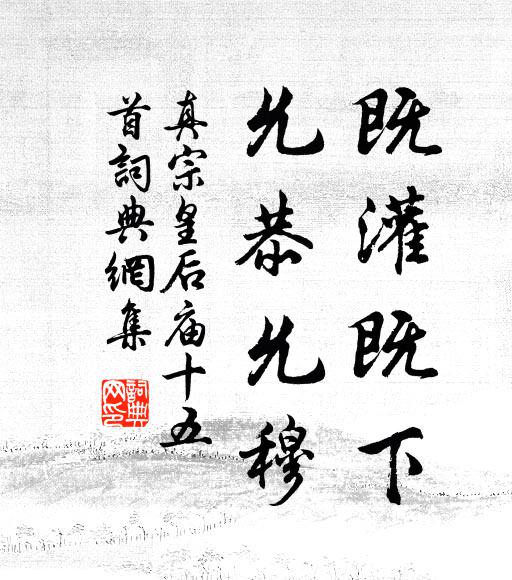 既灌既下
允恭允穆
真宗皇后庙十五
首詞典網集
詞典网印